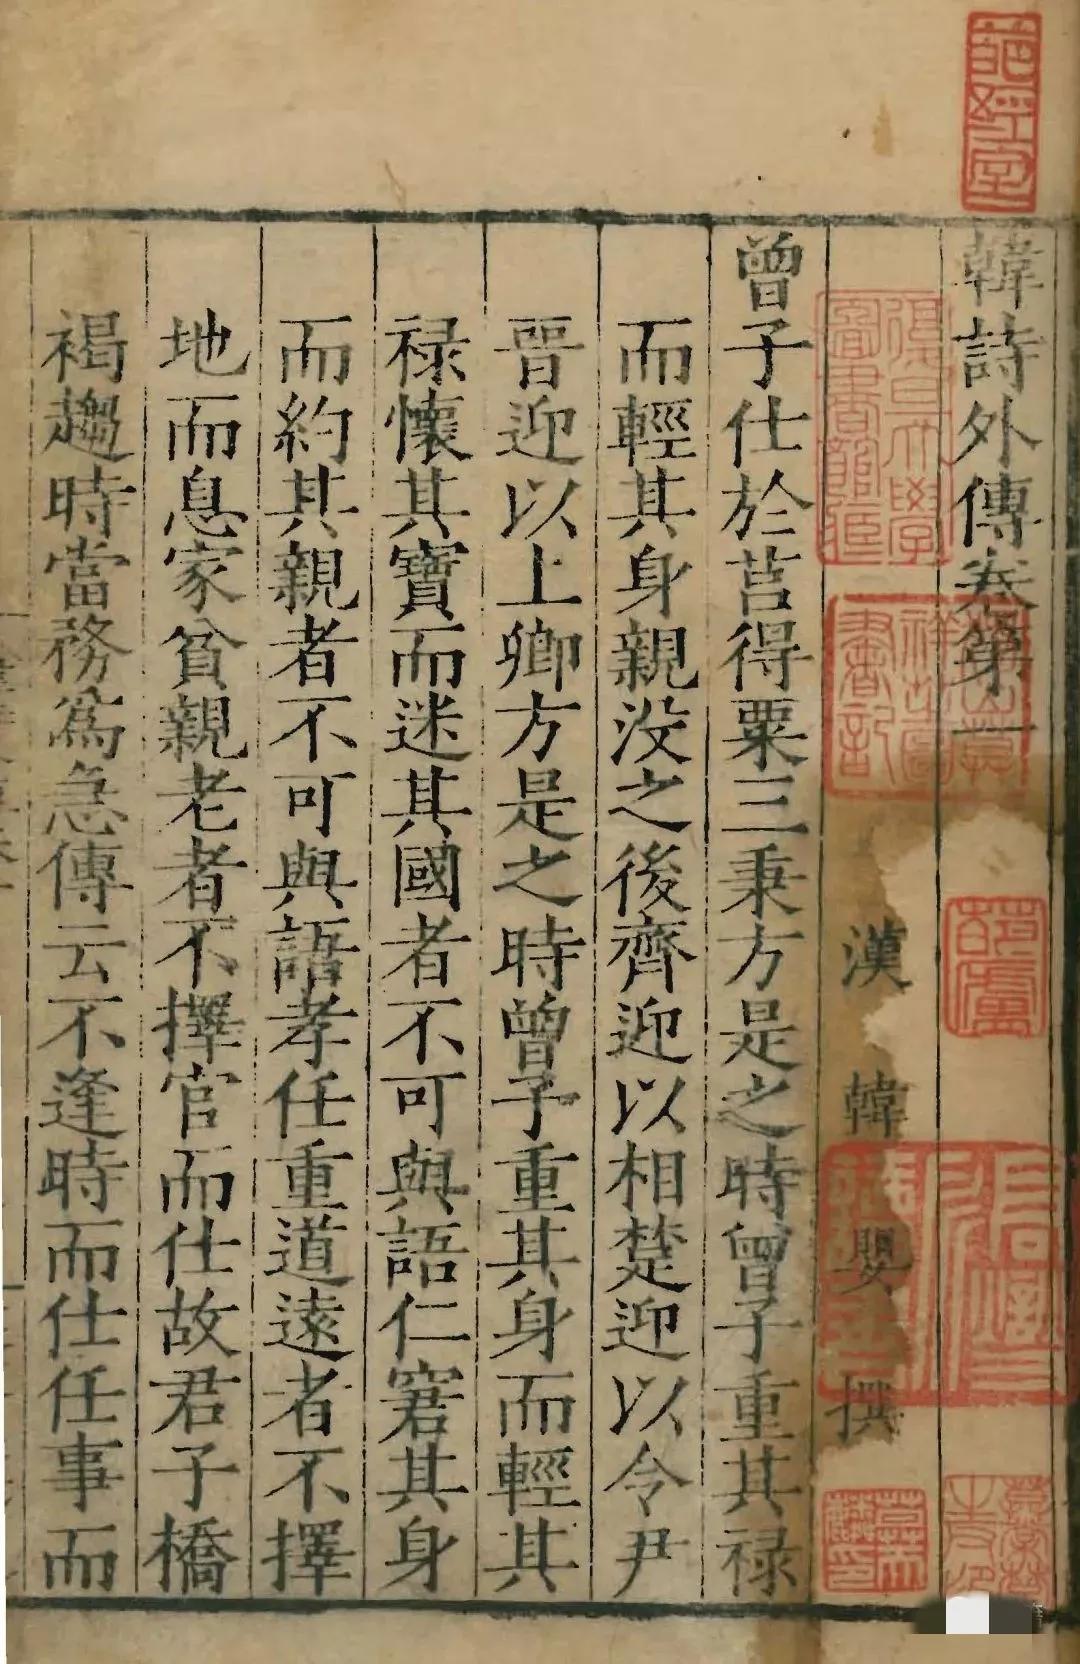 韓詩外傳卷第一
漢韓嬰撰
曾子仕於莒得粟三秉方是之時曾子重其禄
而輕其身親没之後齊迎以相楚迎以令尹
晋迎以上卿方是之時曾子重其身而輕其
禄懷其寶而迷其國者不可與語仁窘其身
而約其親者不可與語孝任重道遠者不擇
地而息家貧親老者不擇官而仕故君子橋
褐趨時當務為急傳云不逢時而仕任事而